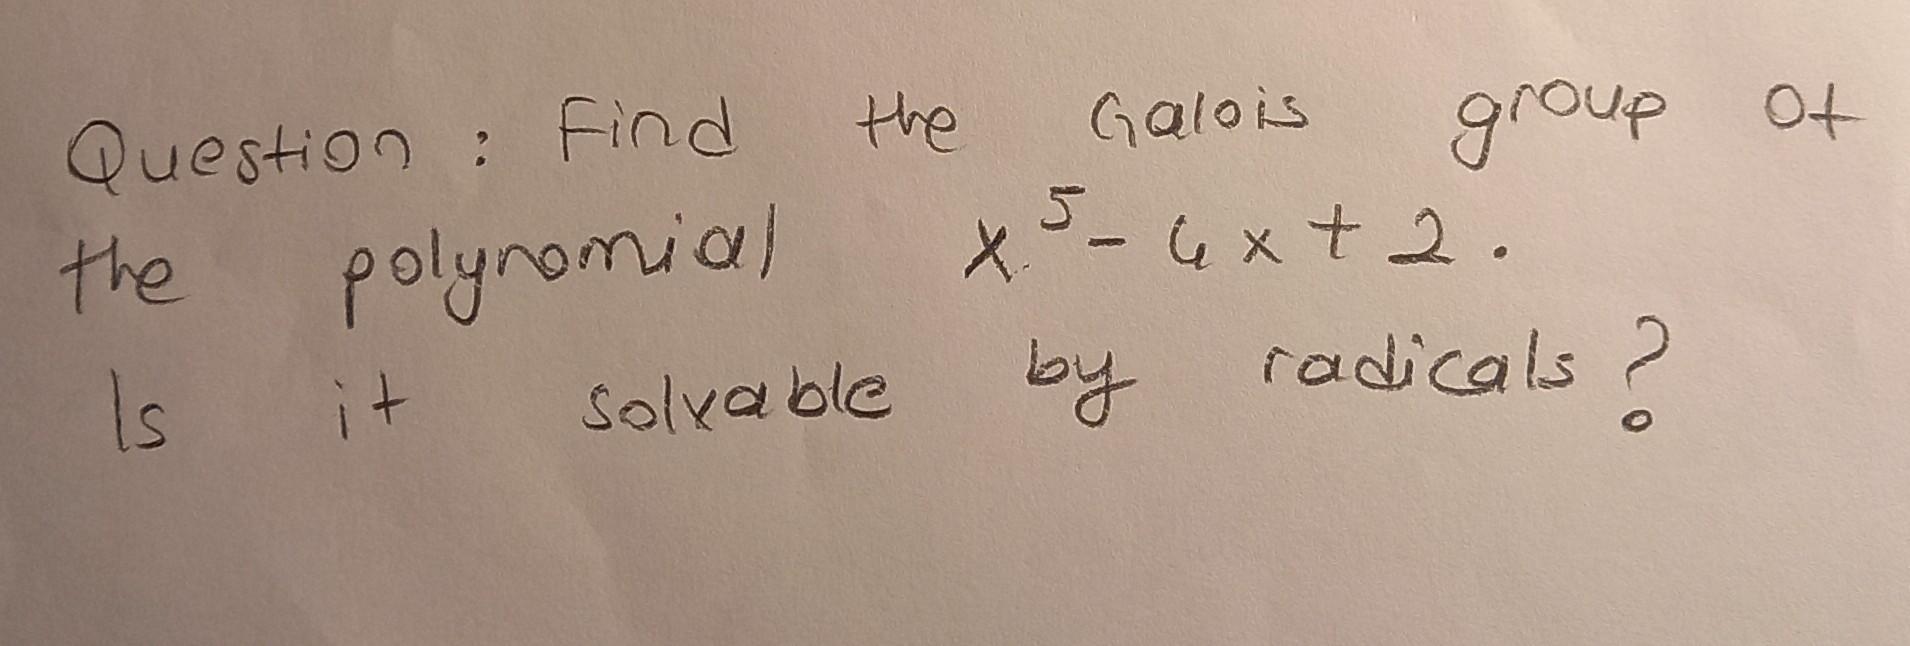 Question : Find the Galois group of
the polynomial x⁵ - 4x + 2.
Is it solvable by radicals ?